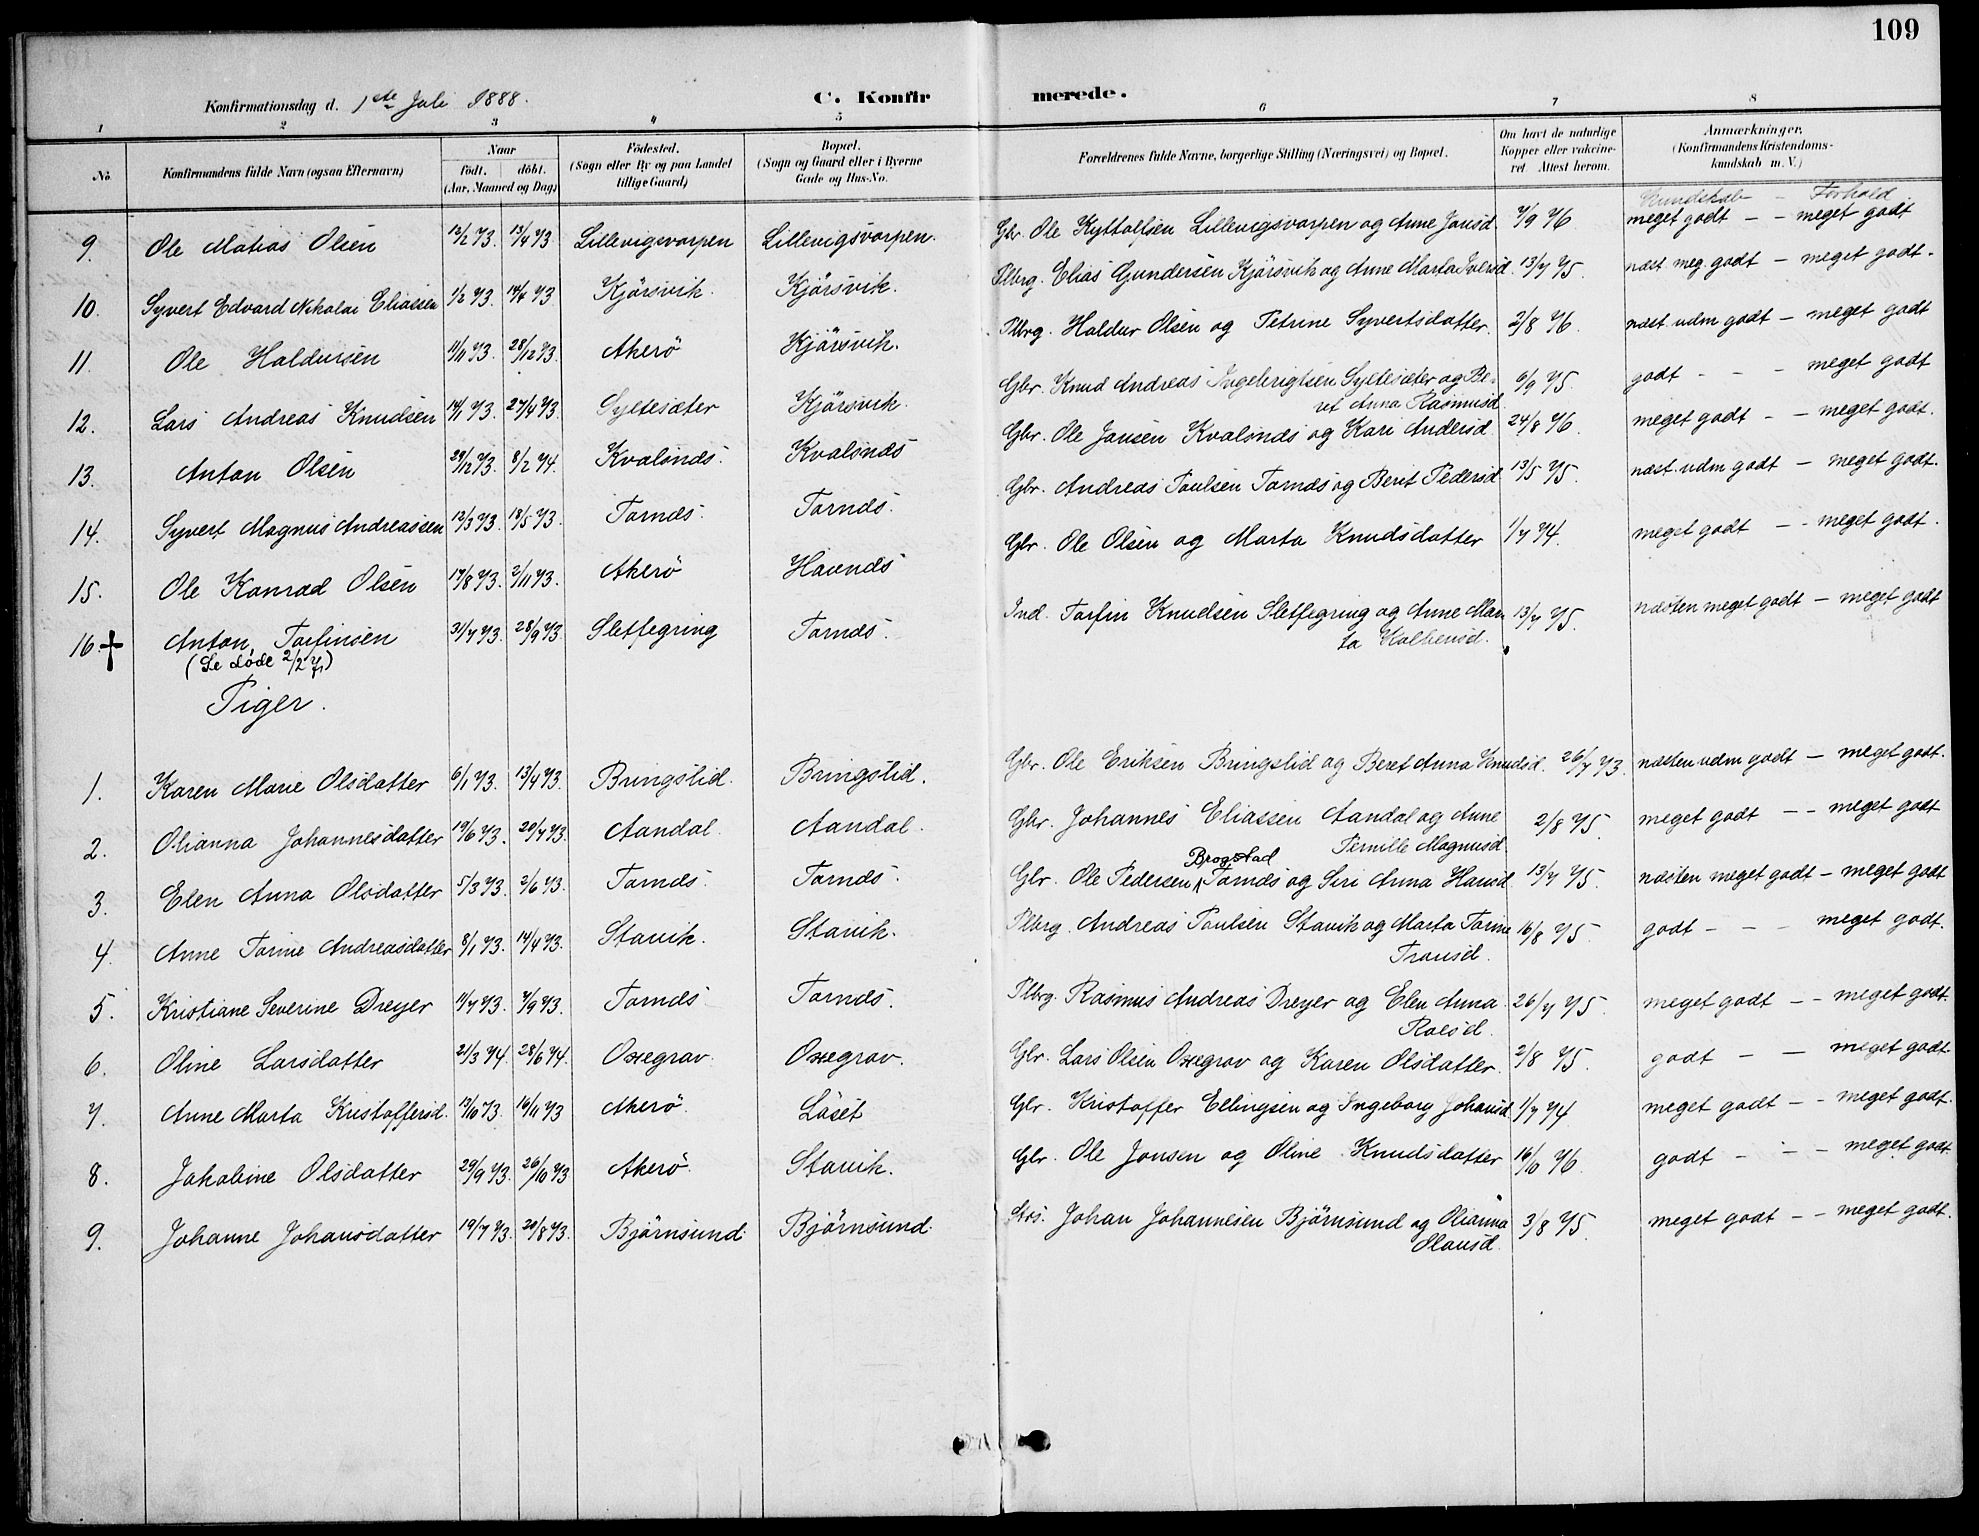 109
Konfirmationsdag d. 1ste Juli 1888.
C. Konfirmerede.
1 2 3 4 5 6 7 8
No.
Konfirmandens fulde Navn (ogsaa Efternavn)
Naar
födt. döbt.
(Aar, Maaned og Dag)
Födested.
(Sogn eller By og paa Landet
tillige Gaard)
Bopæl.
(Sogn og Gaard eller i Byerne
Gade og Hus-No.
Forældrenes fulde Navne, borgerlige Stilling (Næringsvei) og Bopæl.
Om havt de naturlige
Kopper eller vakcine-
ret. Attest herom.
Anmærkninger,
(Konfirmandens Kristendoms-
kundskab m. V.)
Kundskab - Forhold
9. Ole Matias Olsen 12/2 73. 13/4 73 Lillevigsvarpen Lillevigsvarpen. Gbr. Ole Kyttolfsen Lillevigsvarpen og Anne Jansd. 7/9 76 meget godt - - meget godt
10. Syvert Edvard Nikolai Eliassen 1/2 73. 14/4 73 Kjörsvik. Kjörsvik. Plbrg. Elias Gundersen Kjörsvik og Anne Marta Iversd. 13/7 75. næst. meg. godt - meget godt.
11. Ole Haldursen 11/11 73. 28/12 73. Akerö Kjörsvik. Plbrg. Haldur Olsen og Petrine Syvertsdatter. 2/8 76. næst. udm godt - meget godt
12. Lars Andreas Knudsen 14/1 73. 27/4 73. Syltesæter Kjörsvik. Gbr. Knud Andreas Ingebrigtsen Syltesæter og Be-
ret Anna Rasmusd. 6/9 75. godt - - - meget godt
13. Anton Olsen 29/12 73. 8/2 74. Kvalsnds. Kvalsnds Gbr. Ole Jansen Kvalsnds og Kari Andersd. 24/8 76. meget godt - - meget godt.
14. Syvert Magnus Andreassen 12/3 73. 18/5 73. Tornds. Tornds. Gbr. Andreas Paulsen Tornds og Berit Pedersd. 13/5 75. næst. udm godt - meget godt.
15. Ole Konrad Olsen 17/8 73. 2/11 73. Akerö Havnds Gbr. Ole Olsen og Marta Knudsdatter 1/7 74. meget godt - - meget godt.
16 † Anton, Torfinsen 31/7 73. 28/9 73. Sletfegring Tornds. Ind. Torfin Knudsen Sletfegring og Anne Mar-
ta 13/7 75. næsten meget godt - meget godt
(Se døde 2/2 )
Piger.
1. Karen Marie Olsdatter 6/1 73. 13/4 73. Bringslid. Bringslid. Gbr. Ole Eriksen Bringslid og Beret Anna Knudsd. 26/7 73. næsten udm godt - meget godt.
2. Olianna Johannesdatter 19/6 73. 20/7 73. Aandal. Aandal. Gbr. Johannes Eliassen Aandal og Anne
Pernille Magnusd. 2/8 75. meget godt - - meget godt
3. Elen Anna Olsdatter 5/3 73. 2/6 73. Tornds. Tornds. Gbr. Ole Pedersen Brogstad Tornds og Siri Anna Hansd. 13/7 75. næsten meget godt - meget godt
4. Anne Torine Andreasdatter 8/1 73. 14/4 73. Stavik. Stavik. Plbrg. Andreas Paulsen Stavik og Marta Torine
Tronsd. 16/8 75. godt - - - meget godt.
5. Kristiane Severine Dreyer 11/7 73. 7/9 73. Tornds Tornds. Plbrg. Rasmus Andreas Dreyer og Elen Anna
Roesd. 26/7 75. meget godt - - meget godt.
6. Oline Larsdatter 21/3 74. 28/6 74. Oxegrav. Oxegrov. Gbr. Lars Olsen Oxegrov og Karen Olsdatter. 2/8 75. godt - - meget godt.
7. Anne Marta Kristoffersd. 13/10 73. 16/11 73 Akerö. Läset Gbr. Kristoffer Ellingsen og Ingeborg Johansd. 1/7 74 meget godt - - meget godt.
8. Jakobine Olsdatter 29/9 73. 26/10 73 Akerö. Stavik. Gbr. Ole Jonsen og Oline Knudsdatter 16/10 76. godt - - - meget godt.
9. Johanne Johansdatter 19/7 73. 20/8 73. Björnsund. Björnsund. Johan Johannesen Björnsund og Olianna
Olausd. 3/8 75. meget godt - - meget godt.